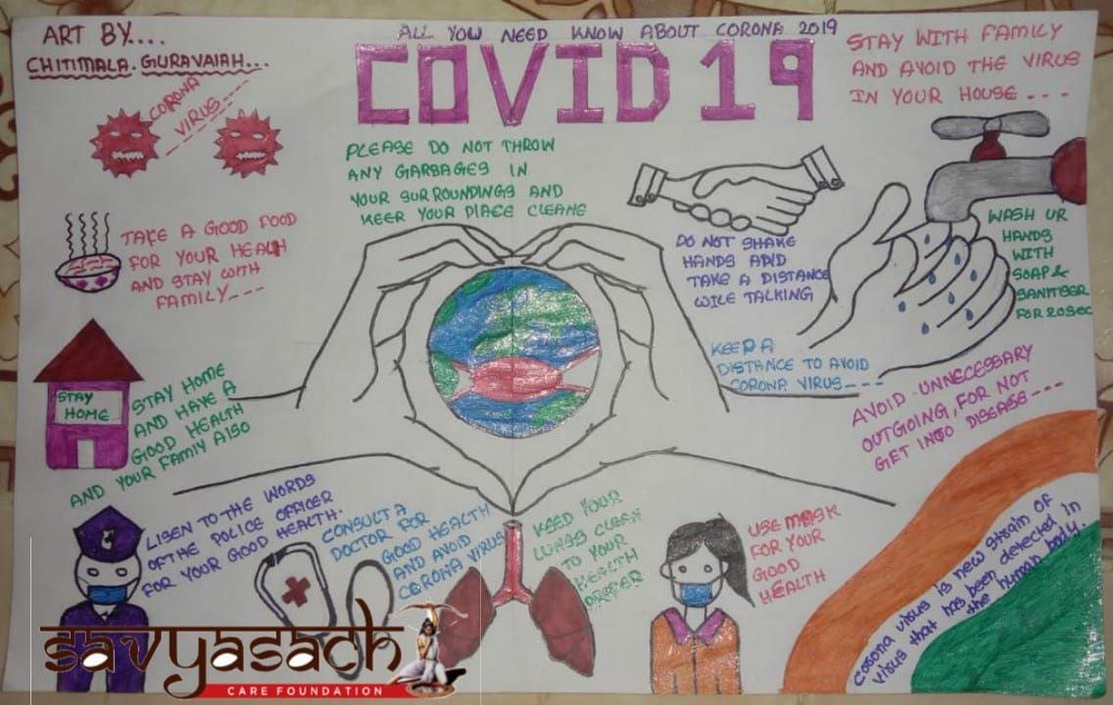 ART BY....
CHITIMALA. GURAVAIAH...
ALL YOU NEED KNOW ABOUT CORONA 2019
COVID 19
STAY WITH FAMILY
AND AVOID THE VIRUS
IN YOUR HOUSE ---
CORONA
VIRUS---
PLEASE DO NOT THROW
ANY GARBAGES IN
YOUR SURROUNDINGS AND
KEEP YOUR PLACE CLEANE
TAKE A GOOD FOOD
FOR YOUR HEALH
AND STAY WITH
FAMILY---
DO NOT SHAKE
HANDS AND
TAKE A DISTANCE
WILE TALKING
WASH UR
HANDS
WITH
SOAP &
SANITISER
FOR 20SEC
KEEP A
DISTANCE TO AVOID
CORONA VIRUS---
STAY
HOME
STAY HOME
AND HAVE A
GOOD HEALTH
AND YOUR FAMIY AlSO
AVOID UNNECESSARY
OUTGOING, FOR NOT
GET INTO DISEASE---
LISEN TO THE WORDS
OFTHE POLICE OFFICER
FOR YOUR GOOD HEALTH.
CONSULT A
DOCTOR FOR
GOOD HEALTH
AND AVOID
CORONA VIRUS
KEEP YOUR
LUNGS CLEAN
TO YOUR
HEALTH
USE MASK
FOR YOUR
GOOD
HEALTH
corona virus is new strain of
virus that has been detected in
the human body.
savyasachi
CARE FOUNDATION